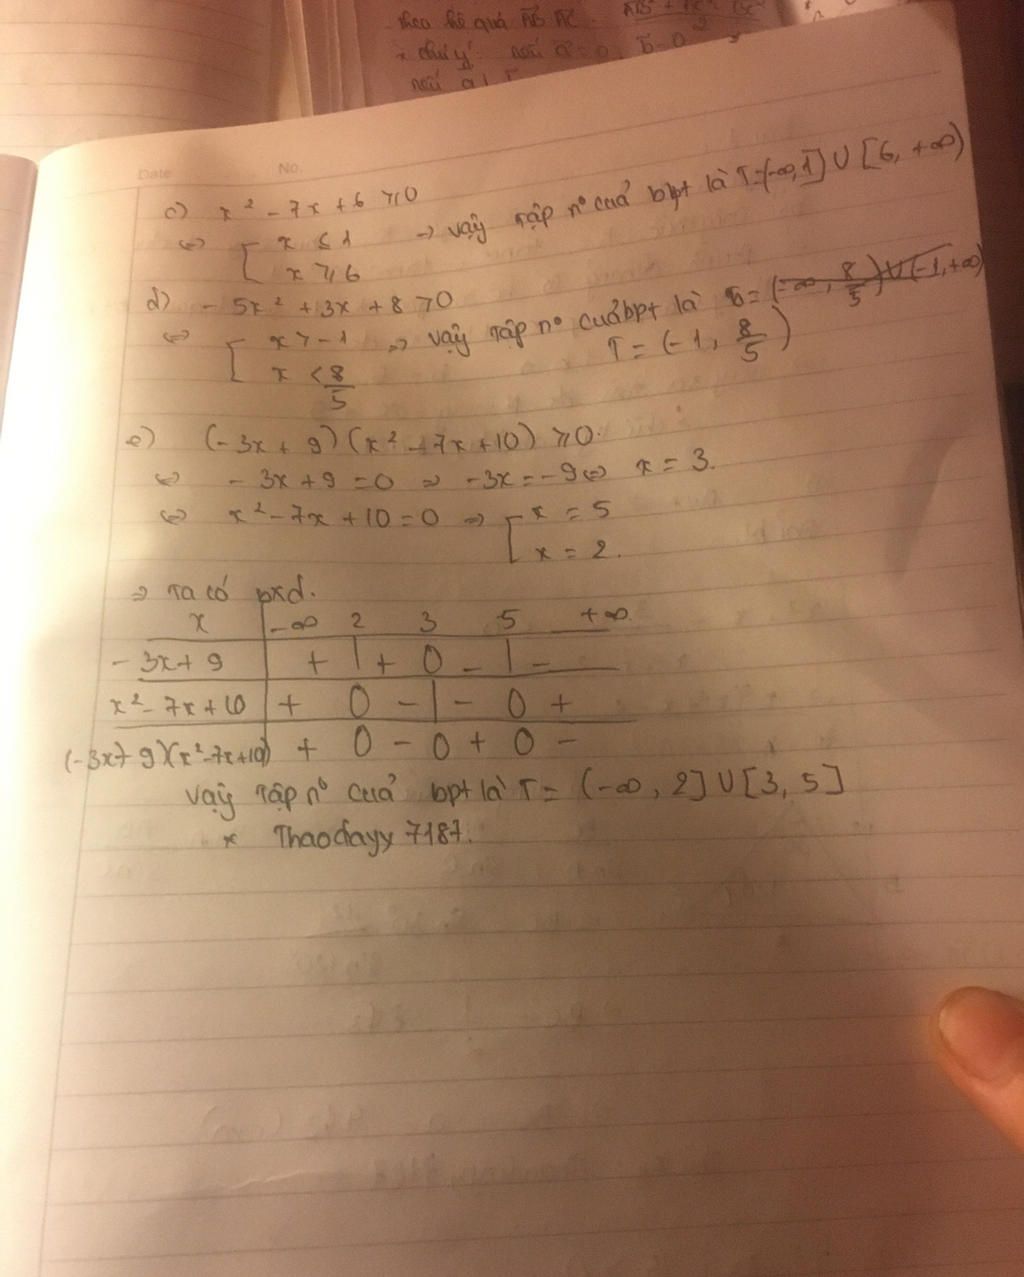 theo hệ quả AB AC
* chú ý: nếu a = 0, b = 0
nếu a
Date No.
c) x² - 7x + 6 ⩾ 0
⇔ [ x ≤ 1 → vậy tập n° của bpt là T=(-∞,1] U [6, +∞)
x ⩾ 6
d) - 5x² + 3x + 8 > 0
⇔ [ x > -1 ⇒ vậy tập n° của bpt là T = (-∞, 8/5) U (-1, +∞)
x < 8/5 T = (-1, 8/5)
e) (-3x + 9)(x² - 7x + 10) ⩾ 0.
⇔ - 3x + 9 = 0 ⇒ -3x = -9 ⇔ x = 3.
⇔ x² - 7x + 10 = 0 ⇒ [ x = 5
x = 2.
⇒ Ta có bxd.
x -∞ 2 3 5 +∞
- 3x + 9 + | + 0 - | -
x² - 7x + 10 + 0 - | - 0 +
(-3x+9)(x²-7x+10) + 0 - 0 + 0 -
Vậy tập n° của bpt là T = (-∞, 2] U [3, 5]
* Thaodayy 7187.